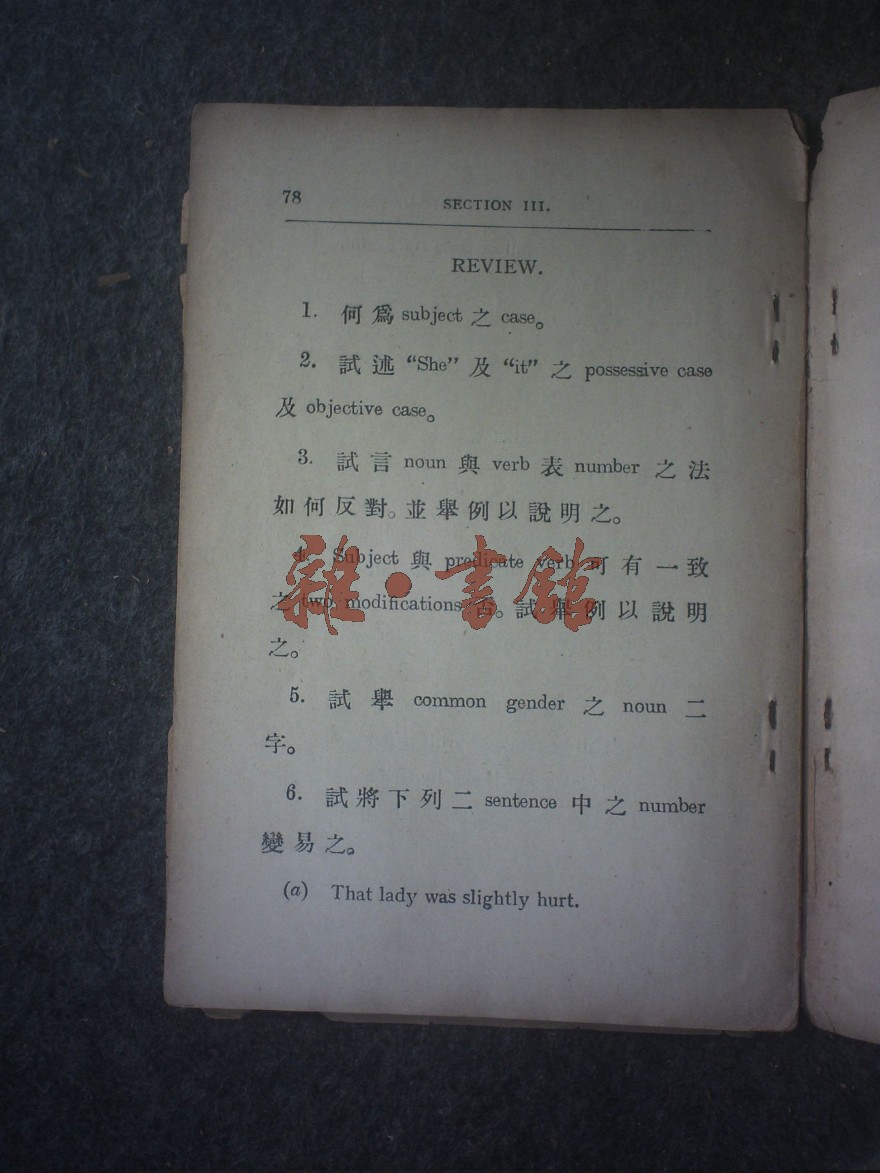 78
SECTION III.
REVIEW.
1. 何爲 subject 之 case。
2. 試述 “She” 及 “it” 之 possessive case
及 objective case。
3. 試言 noun 與 verb 表 number 之法
如何反對。並舉例以說明之。
4. Subject 與 predicate verb 可有一致
之 two modifications 否。試舉例以說明
之。
雜·書館
5. 試舉 common gender 之 noun 二
字。
6. 試將下列二 sentence 中之 number
變易之。
(a) That lady was slightly hurt.